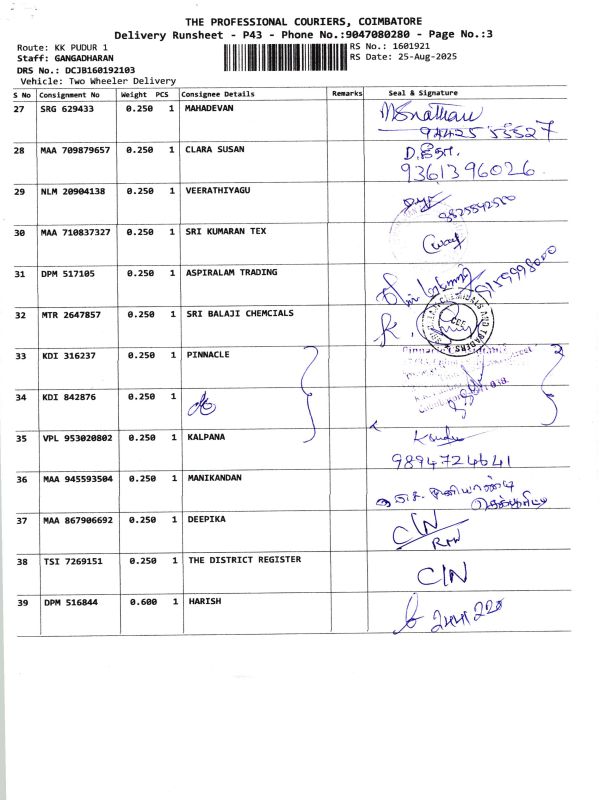 THE PROFESSIONAL COURIERS, COIMBATORE
Delivery Runsheet - P43 - Phone No.:9047080280 - Page No.:3
Route: KK PUDUR 1 RS No.: 1601921
Staff: GANGADHARAN RS Date: 25-Aug-2025
DRS No.: DCJB160192103
Vehicle: Two Wheeler Delivery
S No Consignment No Weight PCS Consignee Details Remarks Seal & Signature
27 SRG 629433 0.250 1 MAHADEVAN
94425 55527
28 MAA 709879657 0.250 1 CLARA SUSAN
9361396026
29 NLM 20904138 0.250 1 VEERATHIYAGU
30 MAA 710837327 0.250 1 SRI KUMARAN TEX
31 DPM 517105 0.250 1 ASPIRALAM TRADING
32 MTR 2647857 0.250 1 SRI BALAJI CHEMCIALS
33 KDI 316237 0.250 1 PINNACLE
34 KDI 842876 0.250 1
35 VPL 953020802 0.250 1 KALPANA
9894724641
36 MAA 945593504 0.250 1 MANIKANDAN
37 MAA 867906692 0.250 1 DEEPIKA
C/N
38 TSI 7269151 0.250 1 THE DISTRICT REGISTER
C/N
39 DPM 516844 0.600 1 HARISH